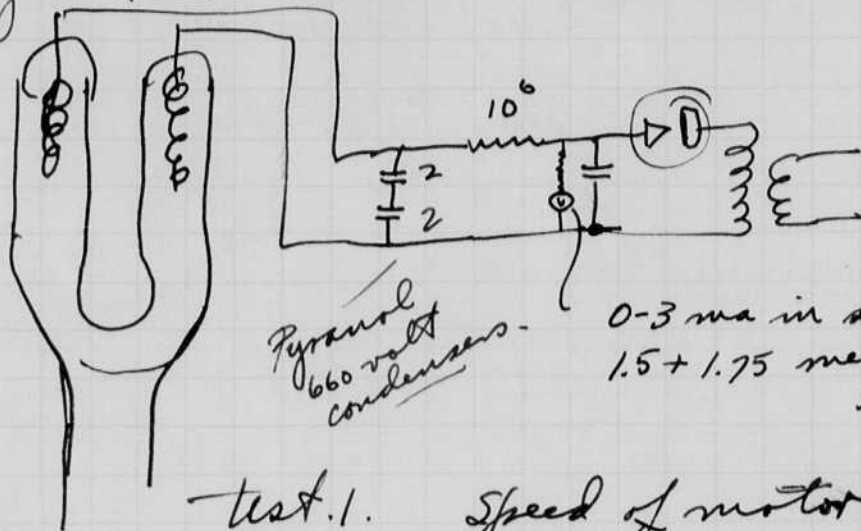 10⁶
2
2
V
Pyranol
660 volt
condensers-
0-3 ma in
1.5 + 1.75
test.1. Speed of motor